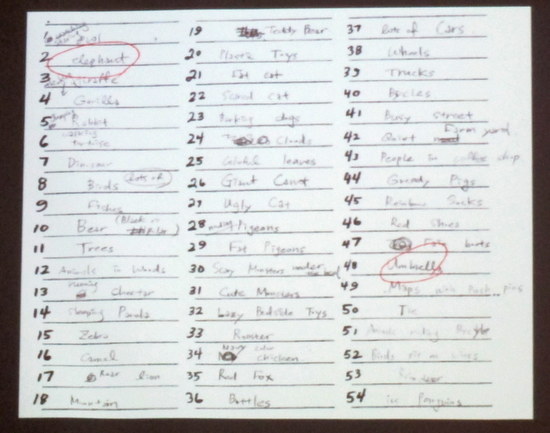 1
2 elephant
3 giraffe
4 Gorilla
5 Rabbit
6 tortoise
7 Dinosaur
8 Birds (lots of)
9 Fishes
10 Bear
11 Trees
12 Animals in Woods
13 Cheetar
14 Sleeping Panda
15 Zebra
16 Camel
17 lion
18 Mountain
19 Teddy Bear
20 Plastic Toys
21 Fat cat
22 cat
23 dogs
24 Clouds
25 leaves
26 Giant
27 Ugly Cat
28 Pigeons
29 Fat Pigeons
30 Scary Monsters under bed
31 Cute Monsters
32 Lazy Bedside Toys
33 Rooster
34 chicken
35 Red Fox
36 Bottles
37 Lots of Cars
38 Wheels
39 Trucks
40 Bycles
41 Busy street
42 Quiet Farm yard
43 People in coffee shop
44 Greedy Pigs
45 Rainbow Socks
46 Red Shoes
47 boots
48 Umbrella
49 Maps with Push pins
50 Tie
51
52 Birds sit on wires
53
54 Penguins